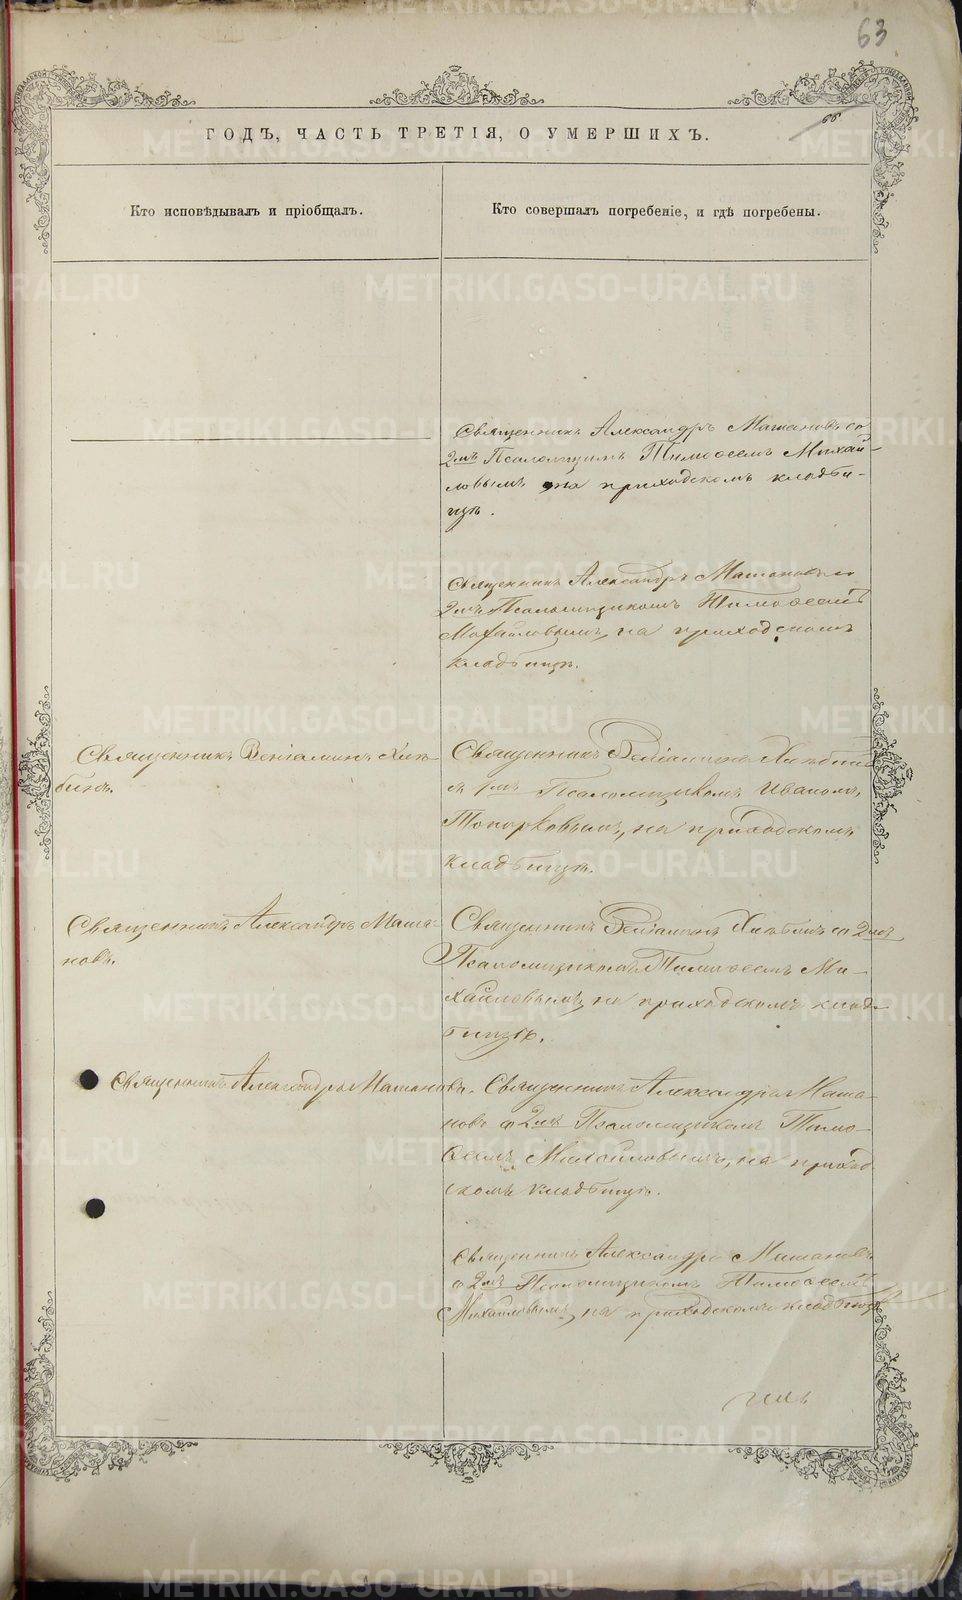 63
66
ГОДЪ, ЧАСТЬ ТРЕТІЯ, О УМЕРШИХЪ.
Кто исповѣдывалъ и пріобщалъ.
Кто совершалъ погребеніе, и гдѣ погребены.
Священникъ Александръ Машановъ со
2мъ Псаломщикомъ Тимоѳеемъ Михай-
ловымъ на приходскомъ кладби-
щѣ.
Священникъ Александръ Машановъ со
2мъ Псаломщикомъ Тимоѳеемъ
Михайловымъ, на приходскомъ
кладбищѣ.
Священникъ Веніаминъ Хлѣ-
бинъ.
Священникъ Веніаминъ Хлѣбинъ
съ 1мъ Псаломщикомъ Иваномъ
Топорковымъ, на приходскомъ
кладбищѣ.
Священникъ Александръ Маша-
новъ.
Священникъ Веніаминъ Хлѣбинъ со 2мъ
Псаломщикомъ Тимоѳеемъ Ми-
хайловымъ, на приходскомъ клад-
бищѣ.
Священникъ Александръ Машановъ.
Священникъ Александръ Маша-
новъ съ 2мъ Псаломщикомъ Тимо-
ѳеемъ Михайловымъ, на приход-
скомъ кладбищѣ.
Священникъ Александръ Машановъ
съ 2мъ Псаломщикомъ Тимоѳеемъ
Михайловымъ, на приходскомъ кладбищѣ
METRIKI.GASO-URAL.RU